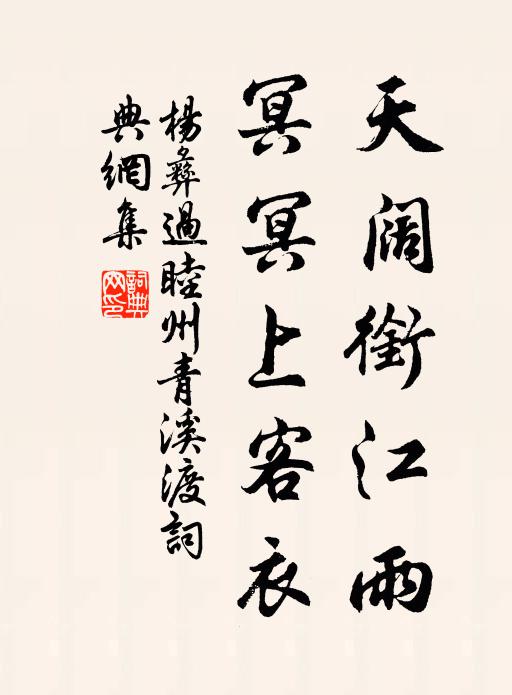 天闊銜江雨
冥冥上客衣
楊彝過睦州青溪渡詞
典網集
詞典網印